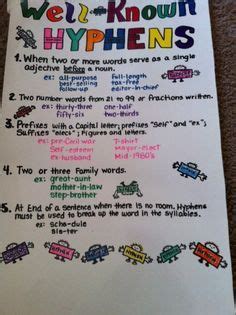 Well-Known
HYPHENS
1. When two or more words serve as a single
adjective before a noun.
ex: all-purpose full-length
best-selling tax-free
follow-up editor-in-chief
2. Two number words from 21 to 99 or fractions written.
ex: thirty-three one-half
fifty-six two-thirds
3. Prefixes with a Capital letter; prefixes "self" and "ex";
Suffixes "elect"; Figures and letters.
ex: pre-Civil war T-shirt
Self-esteem Mayor-elect
ex-husband Mid-1980's
4. Two or three Family words.
ex: great-aunt
mother-in-law
step-brother
5. At End of a sentence when there is no room. Hyphens
must be used to break up the word in the syllables.
ex: sche-dule
sis-ter